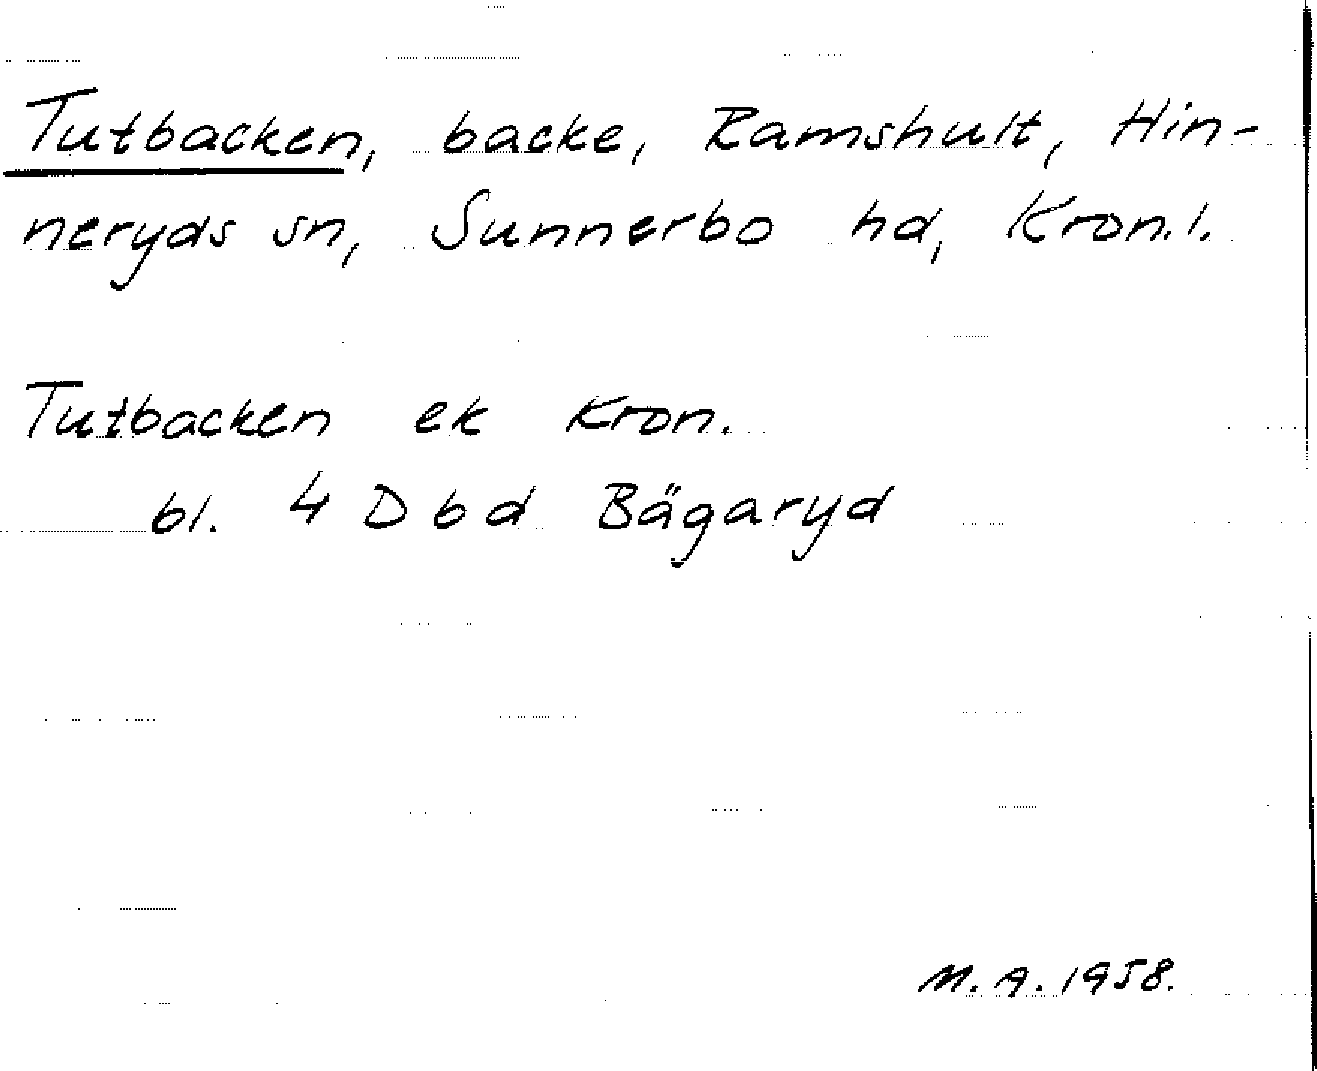 Tutbacken, backe, Ramshult, Hin-
neryds sn, Sunnerbo hd, Kron.l.
Tutbacken ek Kron.
bl. 4 D b d Bägaryd
M.A.1958.